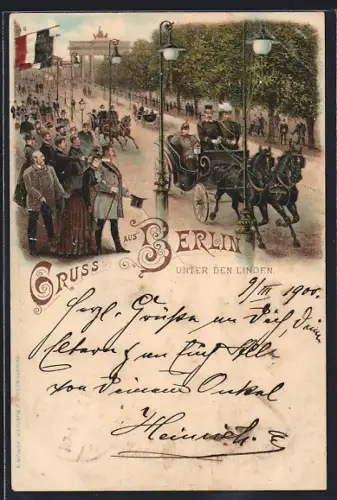 GRUSS AUS BERLIN
UNTER DEN LINDEN
9/III 1900.
Herzl. Grüße an Dich, Deine
Eltern & an
von Deinem Onkel
Heinrich.